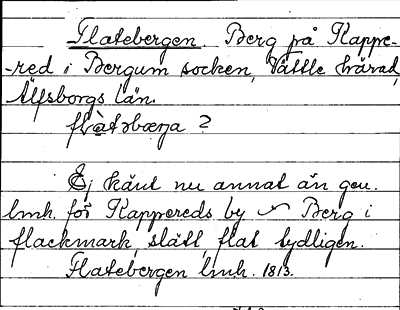 Flatebergen. Berg på Kappe-
-red i Bergum socken, Vättle härad,
Älfsborgs län.
flàtəbærja ?
Ej känt nu annat än gen.
lmh. för Kappereds by ~ Berg i
flackmark, slätt, flat tydligen.
Flatebergen lmh. 1813.